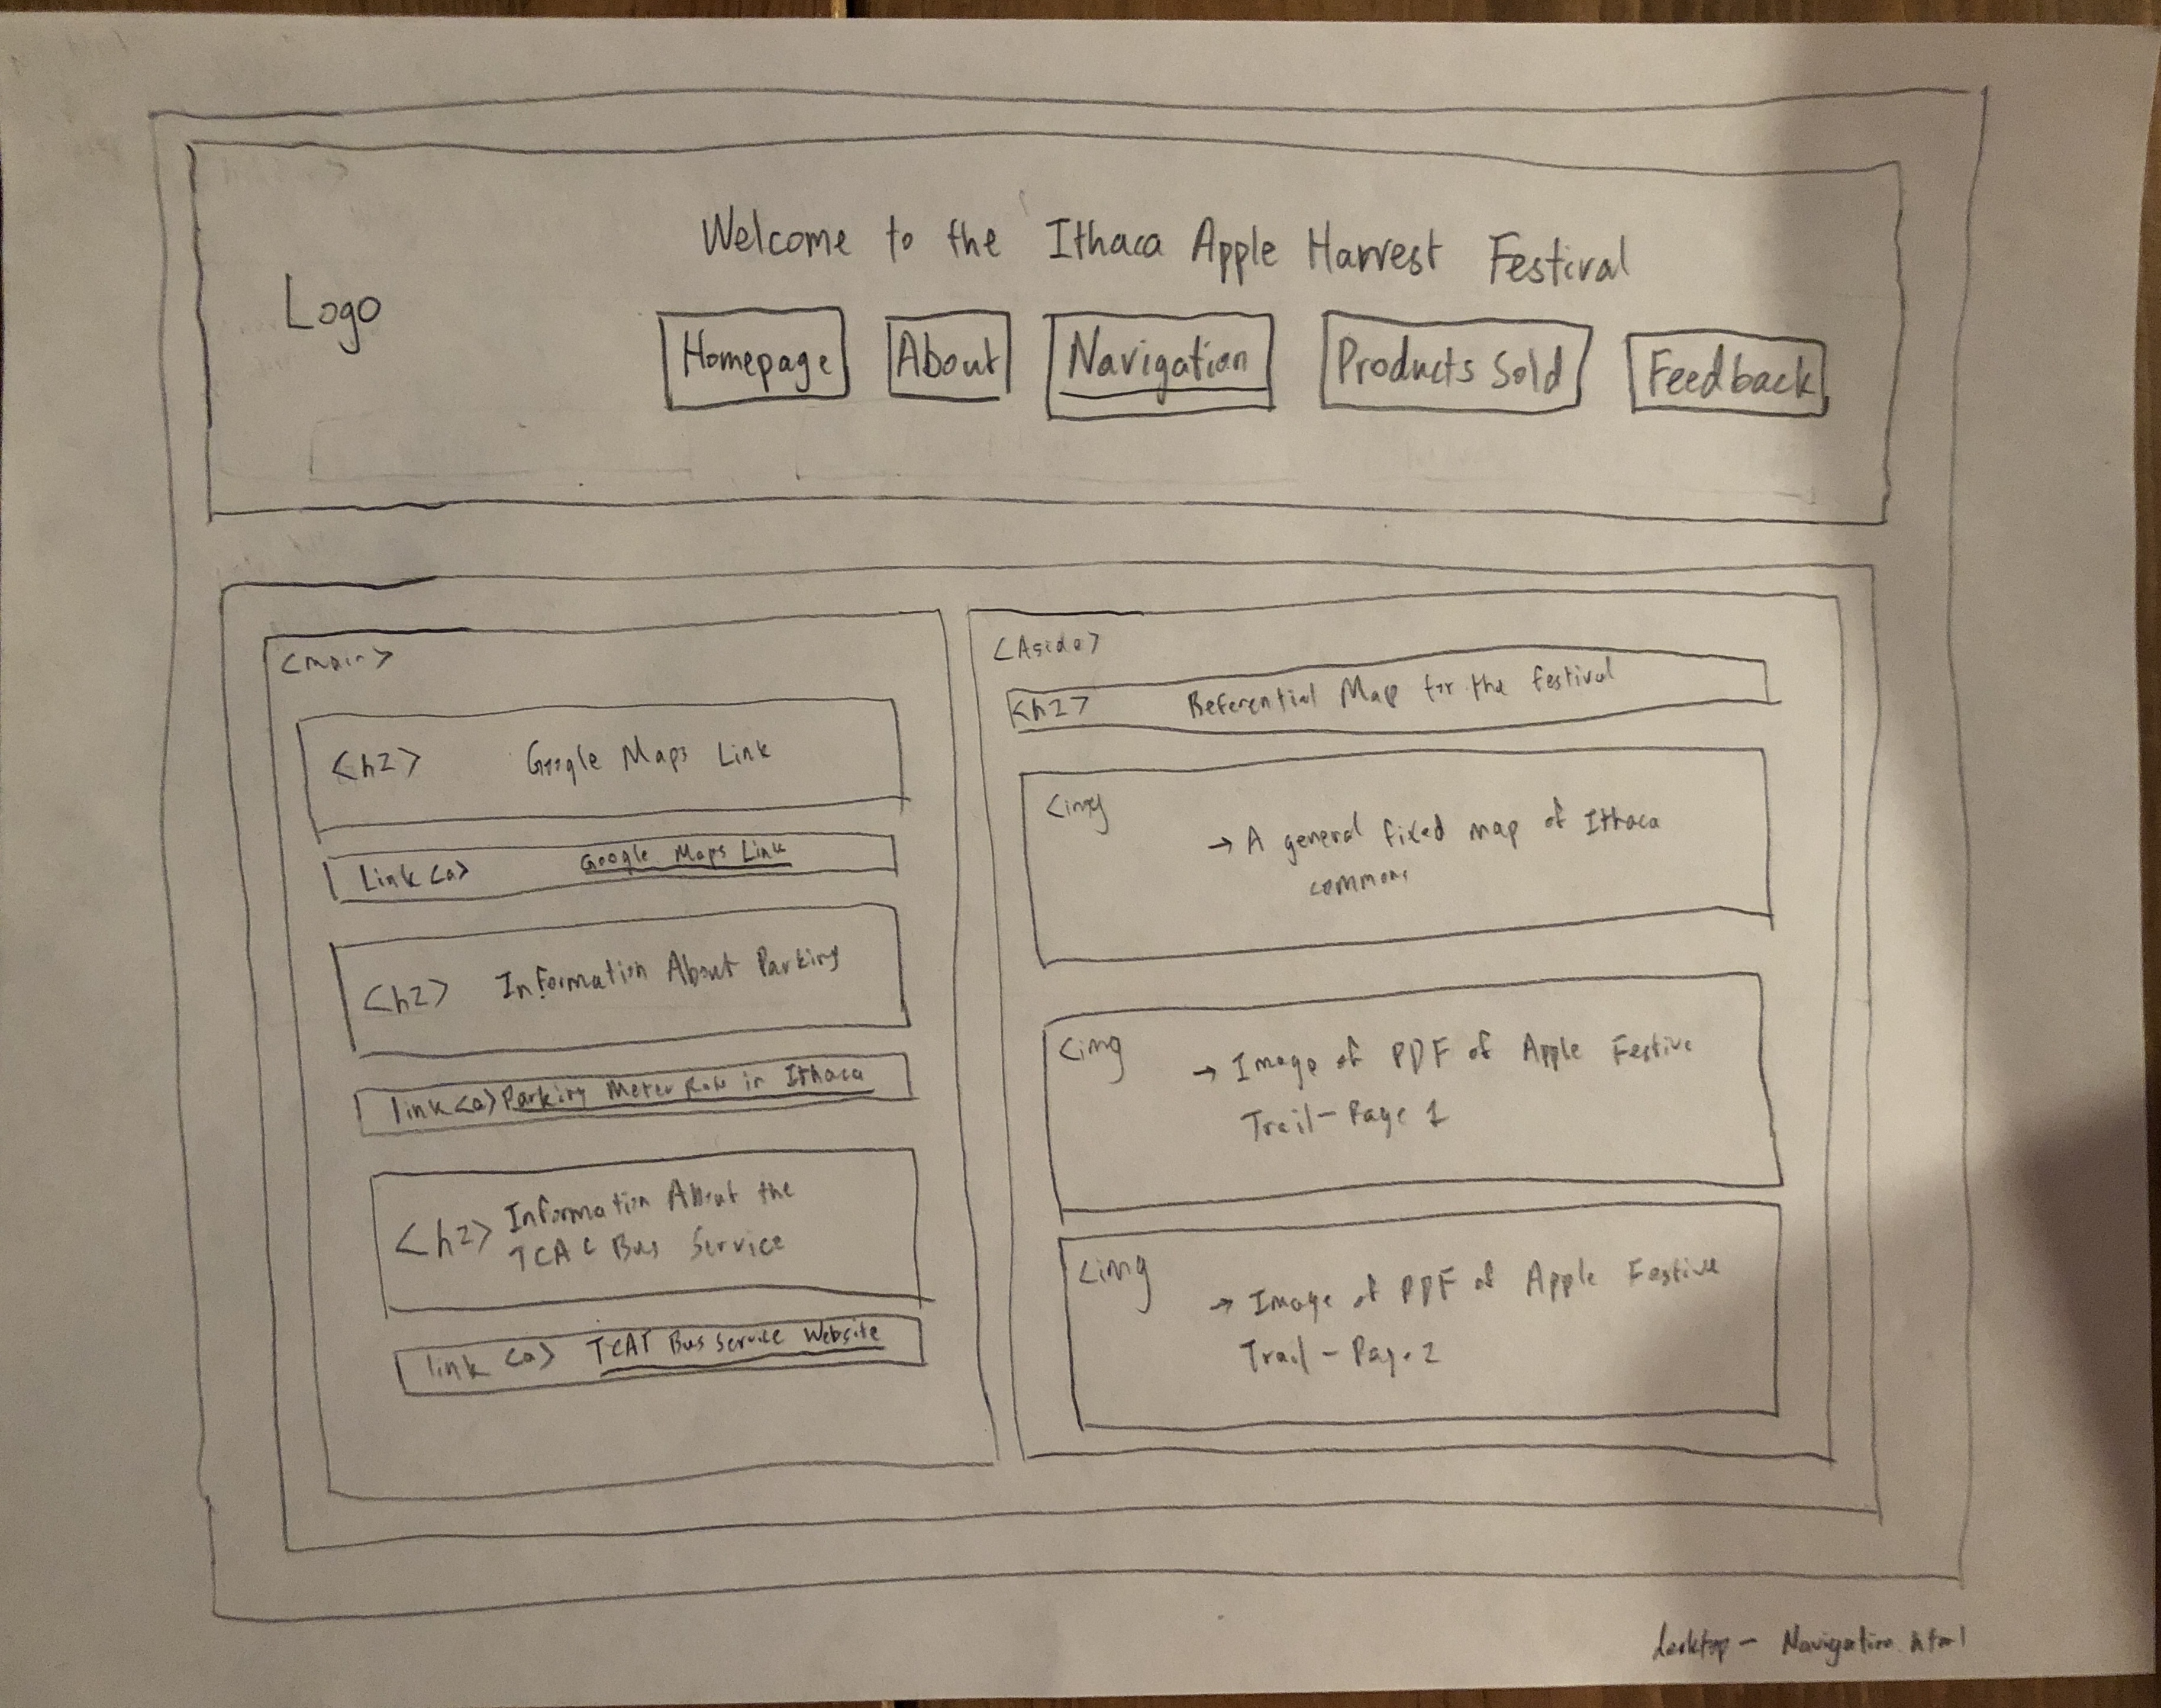 Welcome to the Ithaca Apple Harvest Festival
Logo
Homepage
About
Navigation
Products Sold
Feedback
<main>
<h2> Google Maps Link
Link <a> Google Maps Link
<h2> Information About Parking
link <a> Parking Meter Rate in Ithaca
<h2> Information About the
TCAT Bus Service
link <a> TCAT Bus Service Website
<Aside>
<h2> Referential Map for the festival
<img
→ A general fixed map of Ithaca
commons
<img
→ Image of PDF of Apple Festive
Trail - Page 1
<img
→ Image of PDF of Apple Festive
Trail - Page 2
desktop - Navigation.html